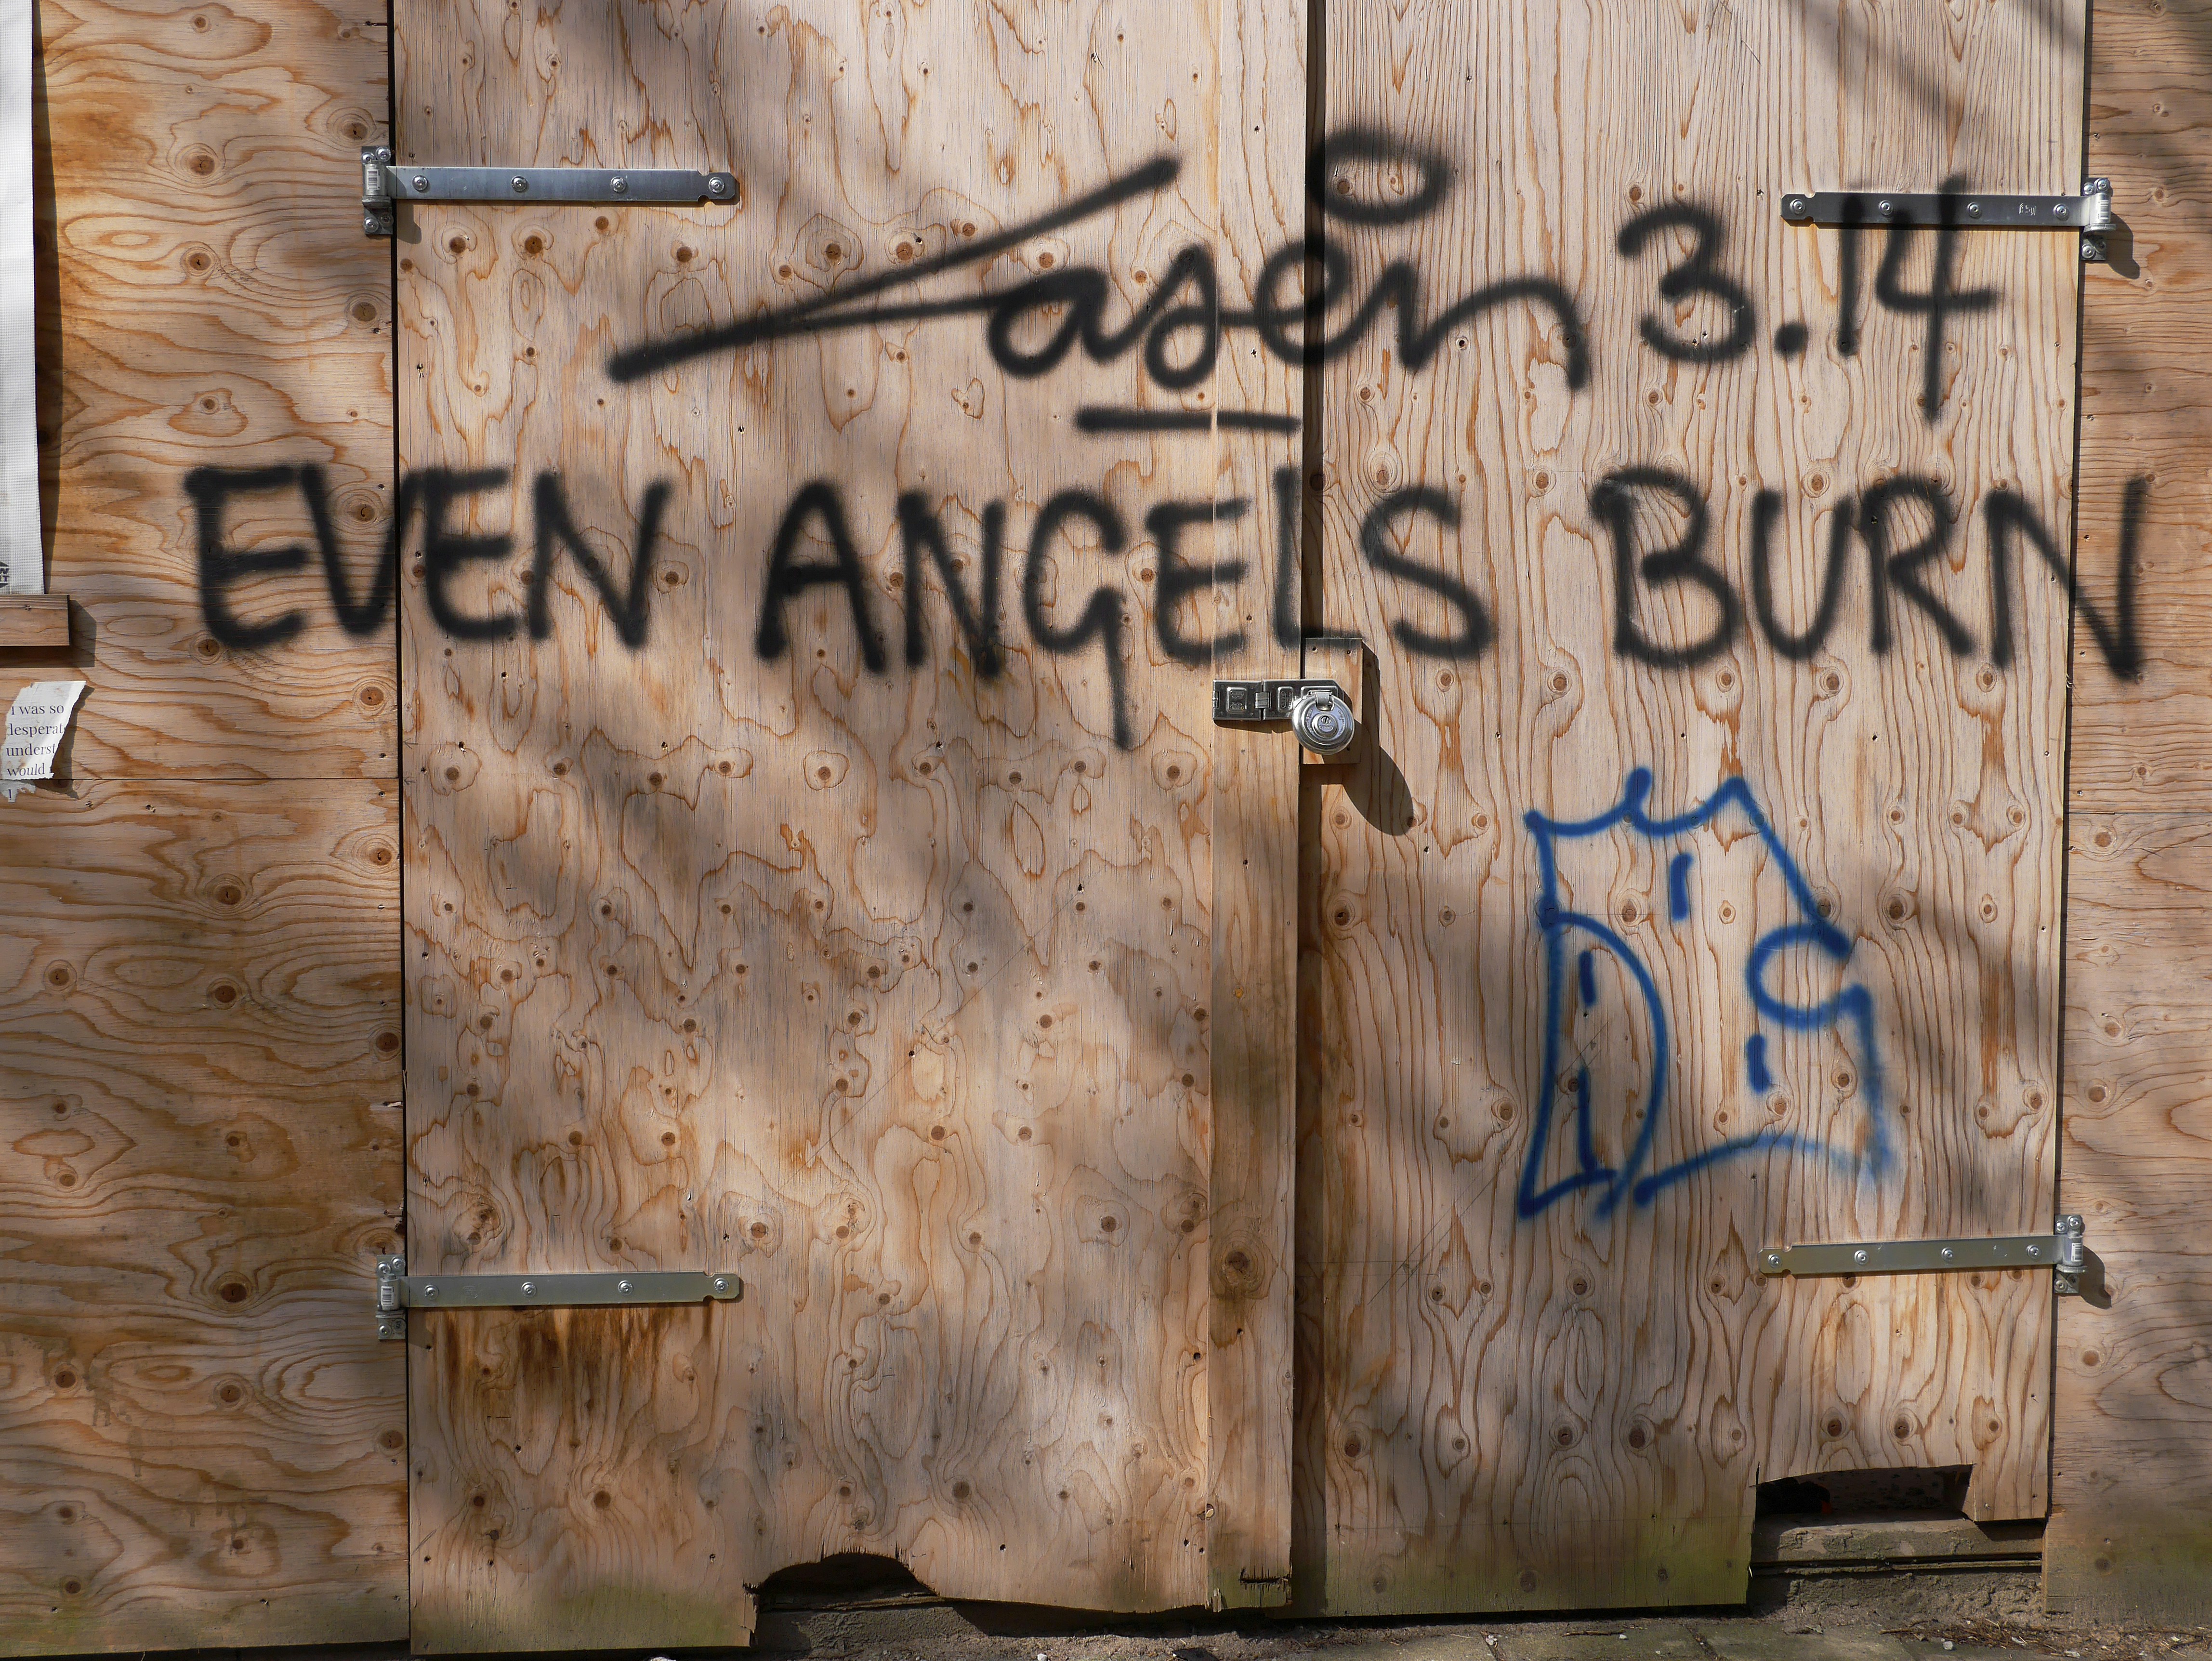 Laser 3.14
EVEN ANGELS BURN
I was so
desperat
underst
would